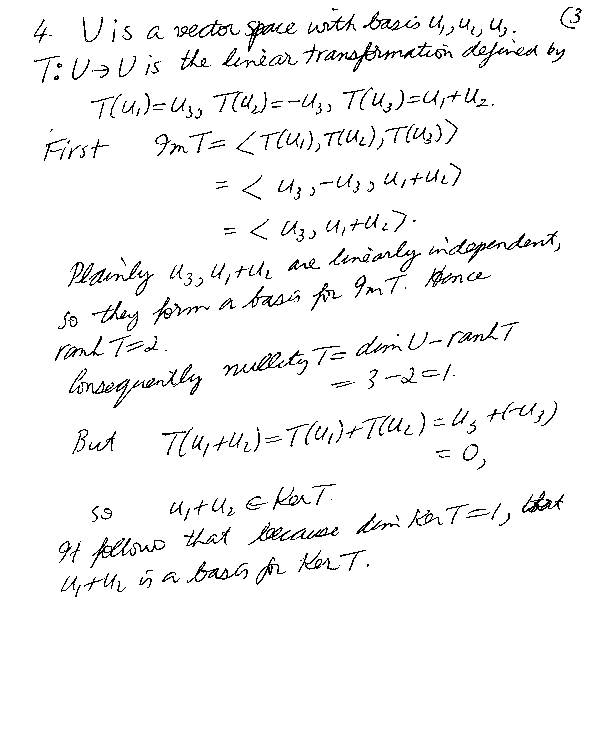 4. U is a vector space with basis u₁, u₂, u₃. (3
T: U→U is the linear transformation defined by
T(u₁)=u₃, T(u₂)=-u₃, T(u₃)=u₁+u₂.
First Im T = <T(u₁), T(u₂), T(u₃)>
= < u₃, -u₃, u₁+u₂>
= < u₃, u₁+u₂>.
Plainly u₃, u₁+u₂ are linearly independent,
so they form a basis for Im T. Hence
rank T=2.
Consequently nullity T = dim U - rank T
= 3-2=1.
But T(u₁+u₂)=T(u₁)+T(u₂)=u₃+(-u₃)
= 0,
so u₁+u₂ ∈ Ker T.
It follows that because dim Ker T=1, that
u₁+u₂ is a basis for Ker T.